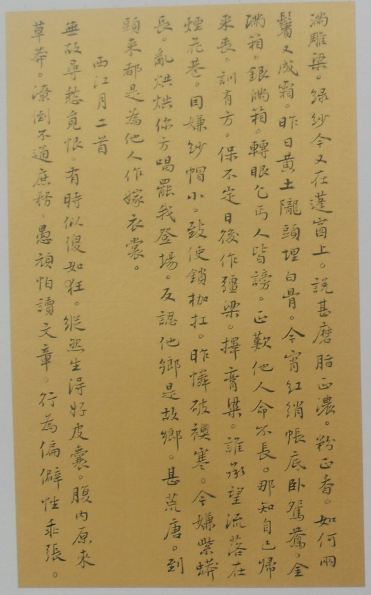 滿雕梁。綠紗今又在蓬窗上。說甚麼脂正濃。粉正香。如何兩
鬢又成霜。昨日黃土隴頭埋白骨。今宵紅綃帳底臥鴛鴦。金
滿箱。銀滿箱。轉眼乞丐人皆謗。正歎他人命不長。那知自己歸
來喪。訓有方。保不定日後作彊梁。擇膏粱。誰承望流落在
煙花巷。因嫌紗帽小。致使鎖枷扛。昨憐破襖寒。今嫌紫蟒
長。亂烘烘你方唱罷我登場。反認他鄉是故鄉。甚荒唐。到
頭來都是為他人作嫁衣裳。
西江月二首
無故尋愁覓恨。有時似傻如狂。縱然生得好皮囊。腹內原來
草莽。潦倒不通庶務。愚頑怕讀文章。行為偏僻性乖張。